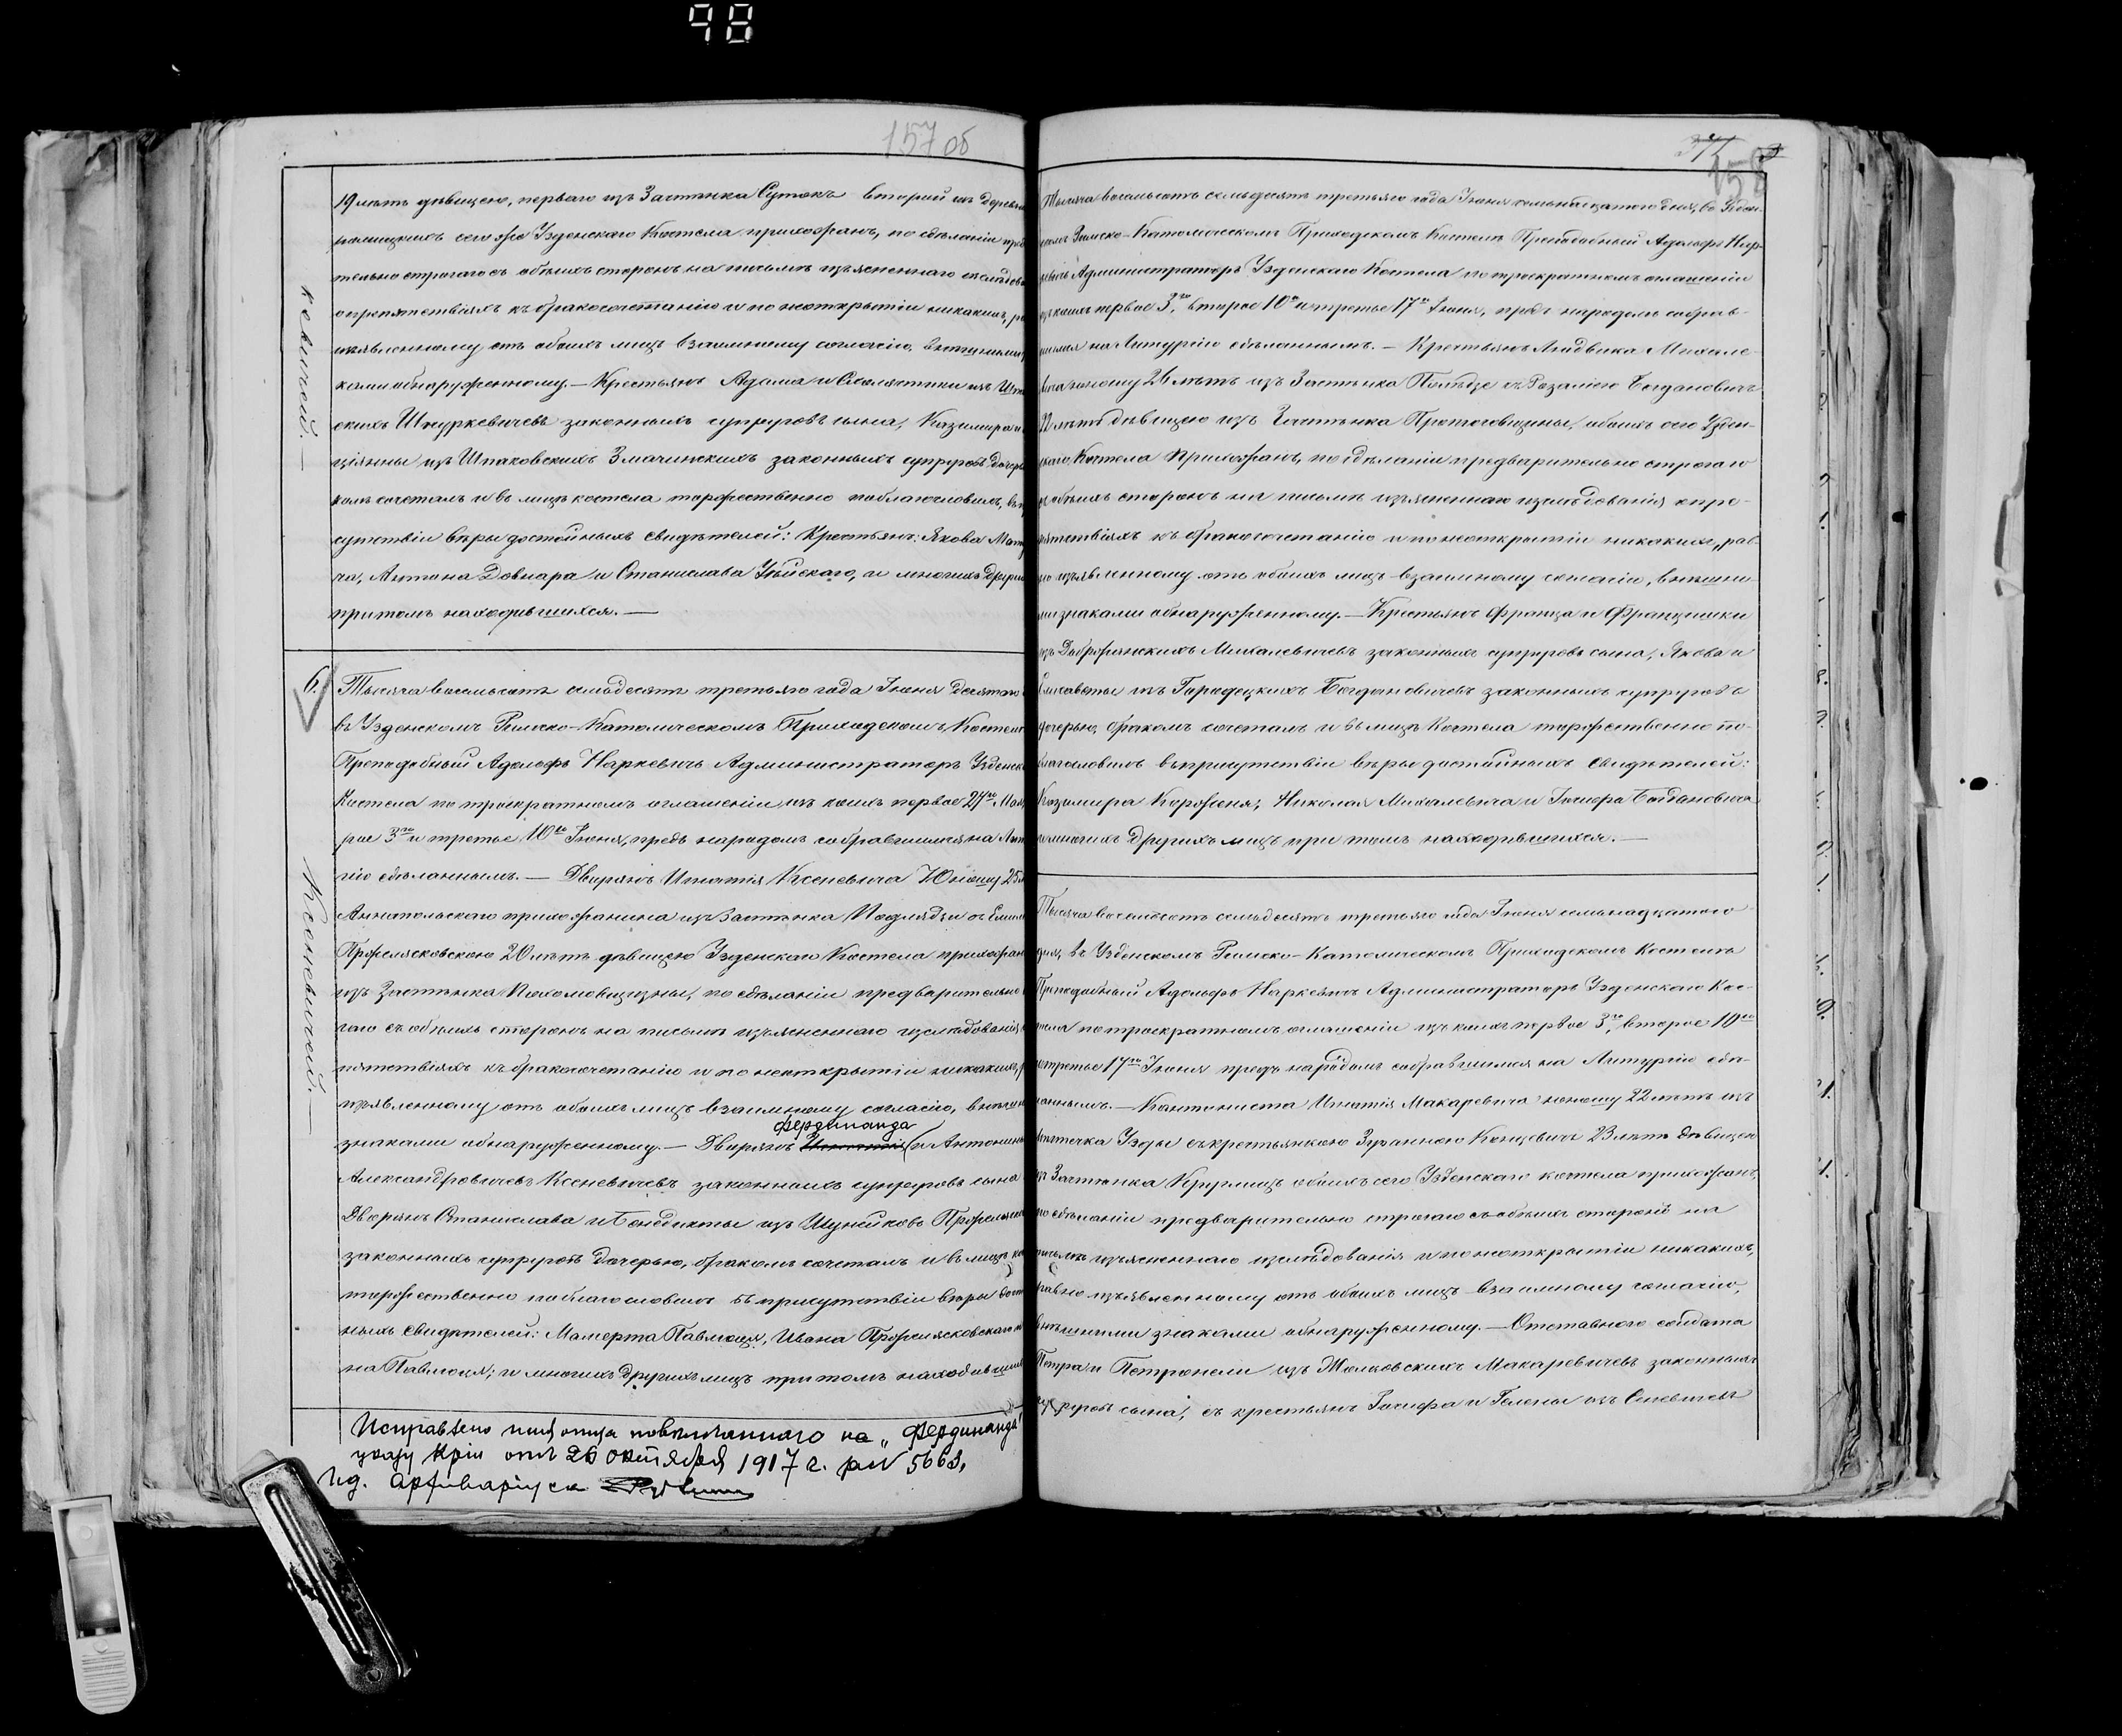 98
157 об
19 лѣтъ дѣвицею, перваго изъ Застѣнка Сутокъ второй изъ деревни
сего же Узденскаго Костела прихожанъ, по сдѣланіи
тельно строгаго съ обѣихъ сторонъ на письмѣ изъясненнаго
о препятствіяхъ къ бракосочетанію и по неоткрытіи никакихъ,
изъявленному отъ обоихъ лицъ взаимному согласію,
ками обнаруженному. — Крестьянъ Адама и изъ
скихъ Шкуркевичевъ законныхъ супруговъ сына, Казимира и
изъ Шпаковскихъ Змачинскихъ законныхъ супруговъ
комъ сочеталъ и въ лицѣ костела торжественно поблагословилъ,
сутствіи вѣры достойныхъ свидѣтелей: Крестьянъ: Якова
ча, Антона Довнара и Станислава и многихъ
при томъ находившихся. —
6.
Тысяча восемьсотъ семьдесятъ третьяго года Іюня десятаго
въ Узденскомъ Римско-Католическомъ Приходскомъ Костелѣ
Преподобный Адольфъ Наркевичъ Администраторъ
Костела по троекратномъ оглашеніи изъ коихъ первое 27го Мая,
рое 3го и третье 10го Іюня, предъ народомъ собравшимся на
гію сдѣланномъ. — Дворянъ Игнатія Ксеневича Юношу 25
Аннопольскаго прихожанина изъ Застѣнка съ
Пржелясковскою 20 лѣтъ дѣвицею Узденскаго Костела
изъ Застѣнка Пахомовщизны, по сдѣланіи предварительно
гаго съ обѣихъ сторонъ на письмѣ изъясненнаго изслѣдованія
пятствіяхъ къ бракосочетанію и по неоткрытіи никакихъ,
изъявленному отъ обоихъ лицъ взаимному согласію,
Фердинанда
знаками обнаруженному. — Дворянъ Игнатія и
Александровичевъ Ксеневичевъ законныхъ супруговъ сына
Дворянъ Станислава и Бенедикты изъ
законныхъ супруговъ дочерью, бракомъ сочеталъ и въ лицѣ
торжественно поблагословилъ въ присутствіи вѣры
ныхъ свидѣтелей: Мамерта Павлюця, Ивана Пржелясковскаго
на Павлюця; и многихъ другихъ лицъ при томъ
Исправлено имя отца новобрачнаго на „Фердинандъ"
указу Крія отъ 26 октября 1917 г. за № 5663,
Ид. Архиваріуса
158
Тысяча восемьсотъ семьдесятъ третьяго года Іюня семьнадцатаго дня, въ Узден-
скомъ Римско-Католическомъ Приходскомъ Костелѣ Преподобный Адольфъ Нар-
кевичъ Администраторъ Узденскаго Костела по троекратномъ оглашеніи
изъ коихъ первое 3го, второе 10го и третье 17го Іюня, предъ народомъ собрав-
шимся на Литургію сдѣланномъ. — Крестьянъ Людвика Михале-
вича юношу 26 лѣтъ изъ Застѣнка съ Розаліею Богдановичъ
22 лѣтъ дѣвицею изъ Застѣнка обоихъ сего Узден-
скаго Костела Прихожанъ, по сдѣланіи предварительно строгаго
съ обѣихъ сторонъ на письмѣ изъясненнаго изслѣдованія о пре-
пятствіяхъ къ бракосочетанію и по неоткрытіи никакихъ, рав-
но изъявленному отъ обоихъ лицъ взаимному согласію, внѣшни-
ми знаками обнаруженному. — Крестьянъ Франца и Францишки
изъ Домбровянскихъ Михалевичевъ законныхъ супруговъ сына, Якова и
Елисаветы изъ Городецкихъ Богдановичевъ законныхъ супруговъ
дочерью, бракомъ сочеталъ и въ лицѣ Костела торжественно по-
благословилъ въ присутствіи вѣры достойныхъ свидѣтелей:
Казимира Корженя, Николая Михалевича и Іосифа Богдановича
и многихъ другихъ лицъ при томъ находившихся. —
Тысяча восемьсотъ семьдесятъ третьяго года Іюня семьнадцатаго
дня, въ Узденскомъ Римско-Католическомъ Приходскомъ Костелѣ
Преподобный Адольфъ Наркевичъ Администраторъ Узденскаго Кос-
тела по троекратномъ оглашеніи изъ коихъ первое 3го, второе 10го
и третье 17го Іюня предъ народомъ собравшимся на Литургію сдѣ-
ланномъ. — Кантониста Игнатія Макаревича юношу 22 лѣтъ изъ
Мѣстечка Узды съ крестьянкою Зузанною Концевичъ 23 лѣтъ дѣвицею
изъ Застѣнка обоихъ сего Узденскаго костела прихожанъ,
по сдѣланіи предварительно строгаго съ обѣихъ сторонъ на
письмѣ изъясненнаго изслѣдованія и по неоткрытіи никакихъ,
равно изъявленному отъ обоихъ лицъ взаимному согласію,
внѣшними знаками обнаруженному. — Отставного солдата
Петра и Петронели изъ Макаревичевъ законныхъ
супруговъ сына, съ крестьянъ Іосифа и Гелены изъ